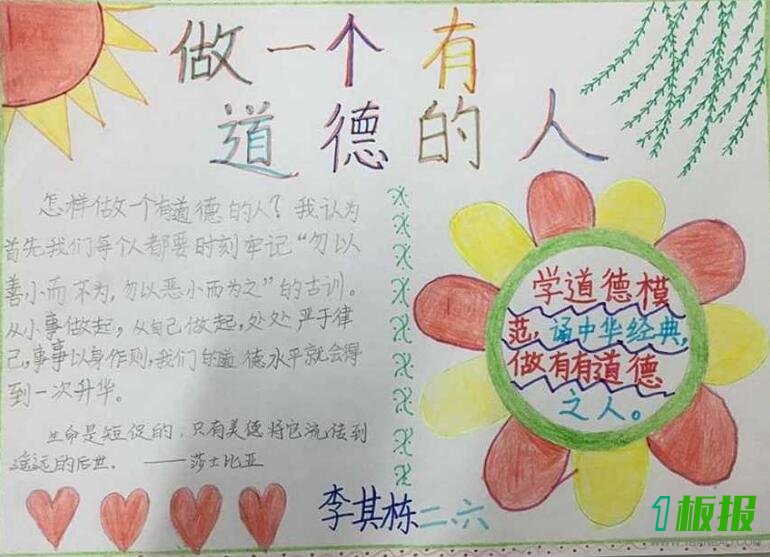 做一个有
道德的人
怎样做一个有道德的人？我认为
首先我们每个人都要时刻牢记“勿以
善小而不为，勿以恶小而为之”的古训。
从小事做起，从自己做起，处处严于律
己，事事以身作则，我们的道德水平就会得
到一次升华。
生命是短促的，只有美德将它流传到
遥远的后世。——莎士比亚
学道德模
范，诵中华经典，
做有有道德
之人。
李其栋二六
1板报
WWW.1BANBAO.COM